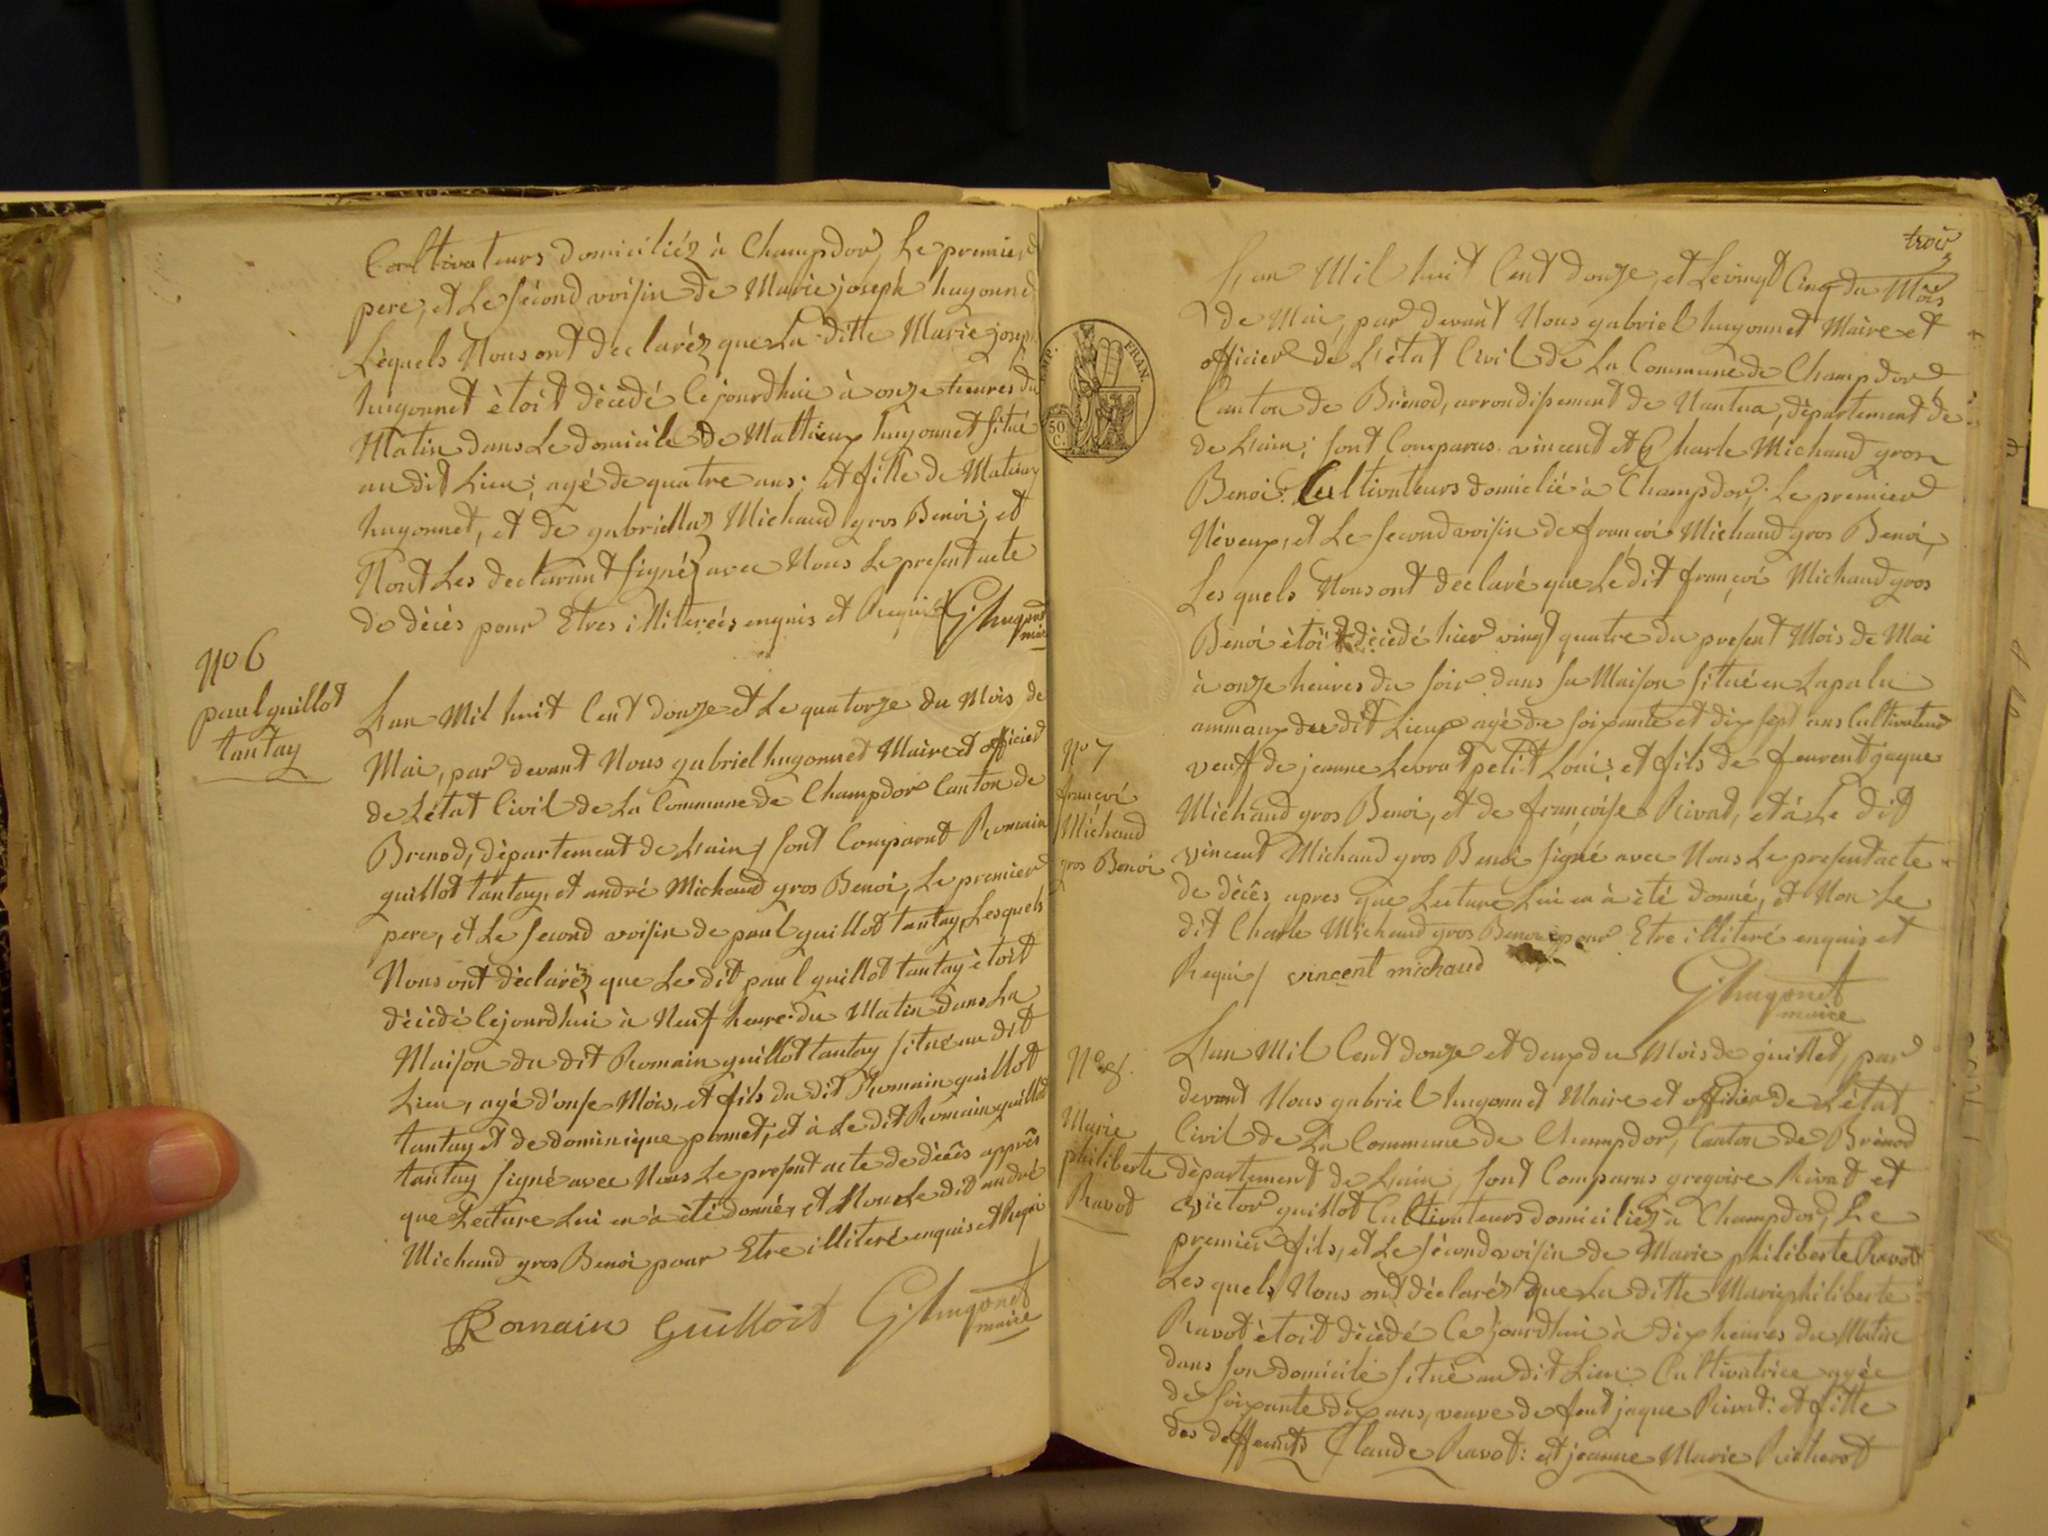 Cultivateurs domiciliéz à Champdor, Le premier
pere, et Le sécond voisin de Marie joseph hugonnet
Léquels Nous ont declaréz que La ditte Marie joseph
hugonnet ètoit décédé Cejourdhui à onze heures du
Matin dans Le domicile de Mathieux hugonnet situé
au dit Lieu; agé de quatre ans; et fille de Matieux
hugonnet, et de gabriellaz Michaud gros Benoi; et
Nont Les declarant signéz avec Nous Le present acte
de décés pour Etres illiterées enquis et Requi G hugonet
maire
No 6
paul guillot
tantay
Lan Mil huit Cent douze et Le quatorze du Mois de
Mai, par devant Nous gabriel hugonnet Maire et officier
de Létat Civil de La Commune de Champdor Canton de
Brenod, département de Lain, sont Comparut Romain
guillot tantay, et andré Michaud gros Benoi, Le premier
pere, et Le second voisin de paul guillot tantay, Lesquels
Nous ont déclaréz que Le dit paul guillot tantay ètoit
décédé Cejourdhui à Neuf heure du Matin dans La
Maison du dit Romain guillot tantay situé au dit
Lieu, agé d'onse Mois, et fils du dit Romain guillot
tantay et de dominique et à Le dit Romain guillot
tantay signé avec Nous Le present acte de décès apprês
que Lecture Lui en à été donné, et Non Le dit andré
Michaud gros Benoi pour Etre illiteré enquis et Requi
Romain Guilloit G hugonet
maire
trois
Lan Mil huit Cent douze, et Le vingt Cinq du Mois
de Mai, par devant Nous gabriel hugonnet Maire et
officier de L'état Civil de La Commune de Champdor
Canton de Brénod, arrondissement de Nantua, département de
de Lain; sont Comparus vincent et Charle Michaud gros
Benoi Cultivateurs domicilié à Champdor, Le premier
Néveux, et Le second voisin de françoi Michaud gros Benoi,
Les quels Nous ont déclaré que Le dit françoi Michaud gros
Benoi ètoit décédé hier vingt quatre du present Mois de Mai
à onze heures du soir dans sa Maison situé en Lapalu
du dit Lieux agé de soixante et dix sept ans Cultivateur
veuf de jeanne Levrat petit Loui; et fils de jaque
Michaud gros Benoi, et de françoise Rivat, et à Le dit
vincent Michaud gros Benoi signé avec Nous Le present acte
de décês apres que Lecture Lui en à été donné, et Non Le
dit Charle Michaud gros Benoi pour Etre illiteré enquis et
Requi / vincent michaud
G hugonet
maire
IMP. FRAN.
50
C.
No 7
françoi
Michaud
gros Benoi
No 8.
Marie
philiberte
Ravot
Lan Mil Cent douze et deux du Mois de guillet, par
devant Nous gabriel hugonnet Maire et officier de L'état
Civil de La Commune de Champdor, Canton de Brénod
département de Lain, sont Comparus gregoire Rivat et
victor guillot Cultivateurs domiciliéz à Champdor, Le
premier fils, et Le sécond voisin de Marie philiberte Ravot
Les quels Nous ont déclaréz que La ditte Marie philiberte
Ravot ètoit décédé Ce jourdhui à dix heures du Matin
dans son domicile situé au dit Lieu Cultivatrice agée
de soixante dix ans, veuve de feut jaque Rivat: et fille
des deffunts Claude Ravot: et jeanne Marie Richerot